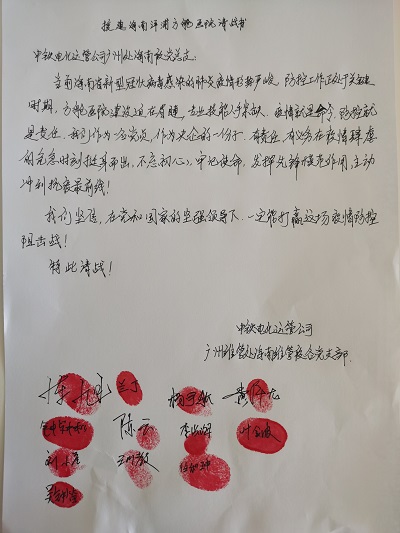 援建海南洋浦方舱医院请战书
中铁电化运管公司广州处海南联合党支:
当前海南省新型冠状病毒感染的肺炎疫情形势严峻,防控工作正处于关键
时期,方舱医院建设迫在眉睫,专业技能人手紧缺。疫情就是命令,防控就
是责任。我们作为一名党员,作为央企的一份子,有责任、有义务在疫情肆虐
的危急时刻挺身而出,不忘初心,牢记使命,发挥先锋模范作用,主动
冲到抗疫最前线!
我们坚信,在党和国家的坚强领导下,一定能打赢这场疫情防控
阻击战!
特此请战!
中铁电化运管公司
广州维管处海南维管段联合党支部
兰丁
陈云